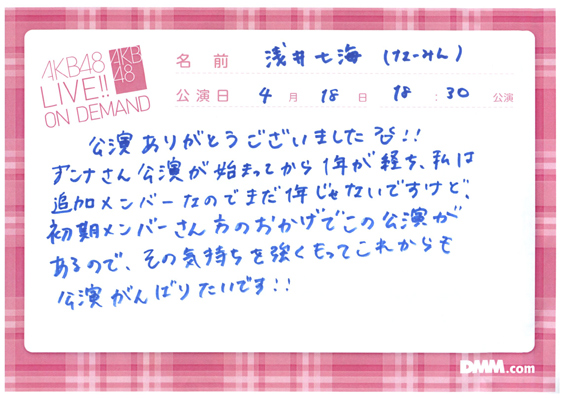 AKB48
LIVE!!
ON DEMAND
AKB
48
名 前 浅井七海 (なーみん)
公演日 4 月 18 日 18 : 30 公演
公演ありがとうございました!!
ずんナさん公演が始まってから1年が経ち、私は
追加メンバーなのでまだ1年じゃないですけど、
初期メンバーさん方のおかげでこの公演が
あるので、その気持ちを強くもってこれからも
公演がんばりたいです!!
DMM.com